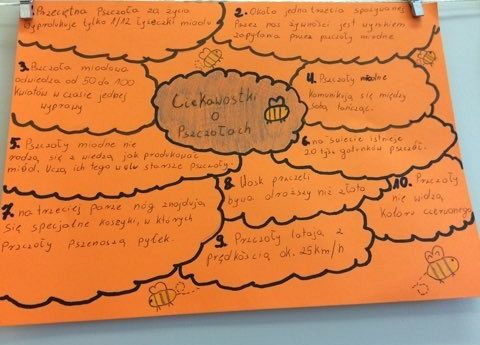 1. Przeciętna Pszczoła za życia
wyprodukuje tylko 1/12 łyżeczki miodu
2. Około jedna trzecia spożywanej
Przez nas żywności jest wynikiem
zapylania przez pszczoły miodne
3. Pszczoła miodowa
odwiedza od 50 do 100
kwiatów w czasie jednej
wyprawy
Ciekawostki
o
Pszczołach
4. Pszczoły miodne
komunikują się między
sobą tańcząc.
5. Pszczoły miodne nie
rodzą się z wiedzą jak produkować
miód. Uczą ich tego w ulu starsze Pszczoły.
6. na świecie istnieje
20 tyś. gatunków pszczół.
7. na trzeciej parze nóg znajdują
się specjalne koszyki, w których
Pszczoły Przenoszą pyłek.
8. Wosk pszczeli
bywa droższy niż złoto
9. Pszczoły latają z
prędkością ok. 25km/h
10. Pszczoły
nie widzą
koloru czerwonego